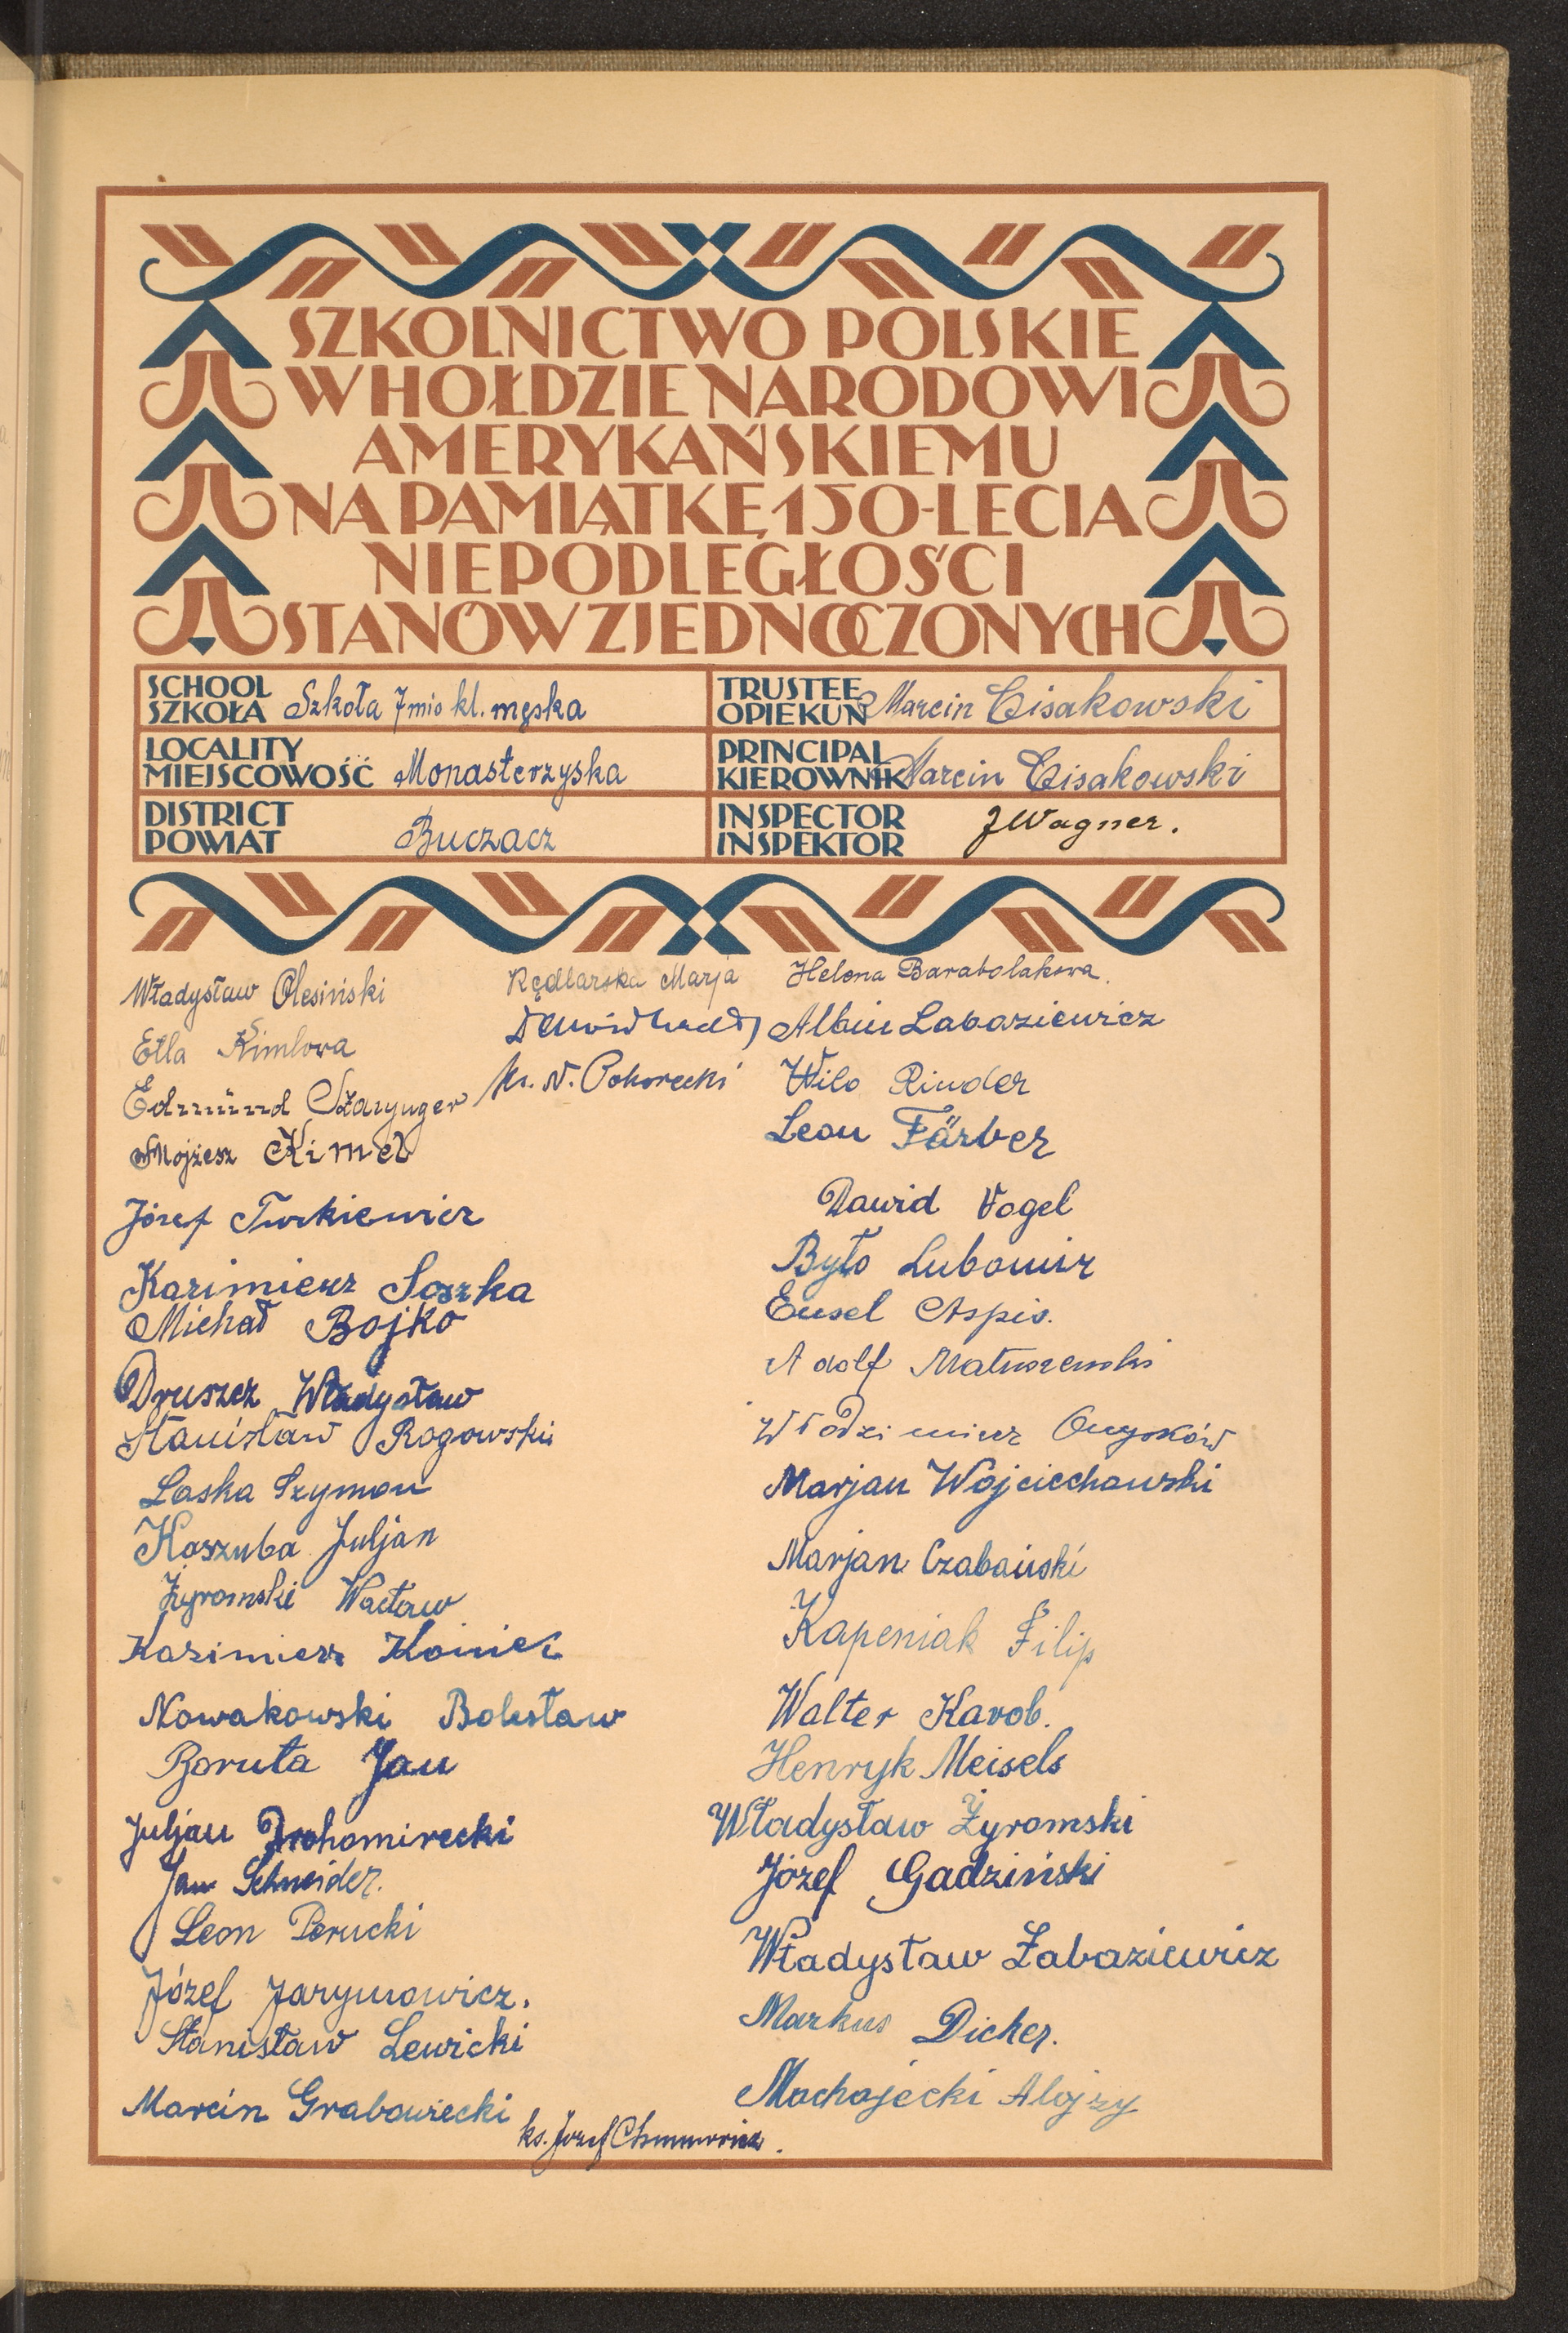 SZKOLNICTWO POLSKIE
W HOŁDZIE NARODOWI
AMERYKAŃSKIEMU
NA PAMIĄTKĘ 150-LECIA
NIEPODLEGŁOŚCI
STANÓW ZJEDNOCZONYCH
SCHOOL
SZKOŁA Szkoła 7mio kl. męska
TRUSTEE
OPIEKUN Marcin Cisakowski
LOCALITY
MIEJSCOWOŚĆ Monasterzyska
PRINCIPAL
KIEROWNIK Marcin Cisakowski
DISTRICT
POWIAT Buczacz
INSPECTOR
INSPEKTOR J Wagner.
Władysław Olesiński
Etla Kimlowa
Edmund Szarynger
Mojżesz Kimel
Józef Turkiewicz
Kazimierz Soszka
Michał Bojko
Druszcz Władysław
Stanisław Rogowski
Laska Szymon
Kaszuba Juljan
Żyromski Wacław
Kazimierz Koniec
Nowakowski Bolesław
Boruta Jan
Juljan Drohomirecki
Jan Schneider.
Leon Perucki
Józef Jarymowicz.
Stanisław Lewicki
Marcin Grabowiecki
Rędlarska Marja
ks. N. Pohorecki
ks. Józef
Helena Barabolakowa.
Albin Łabaziewicz
Wilo Rinder
Leon Färber
Dawid Vogel
Byto Lubomir
Eusel Aspis.
Adolf Matuszewski
Włodzimierz Onysków
Marjan Wojciechowski
Marjan Czabański
Kapeniak Filip
Walter Karob.
Henryk Meisels
Władysław Żyromski
Józef Gadziński
Władysław Łabaziewicz
Markus Dicker.
Machajecki Alojzy